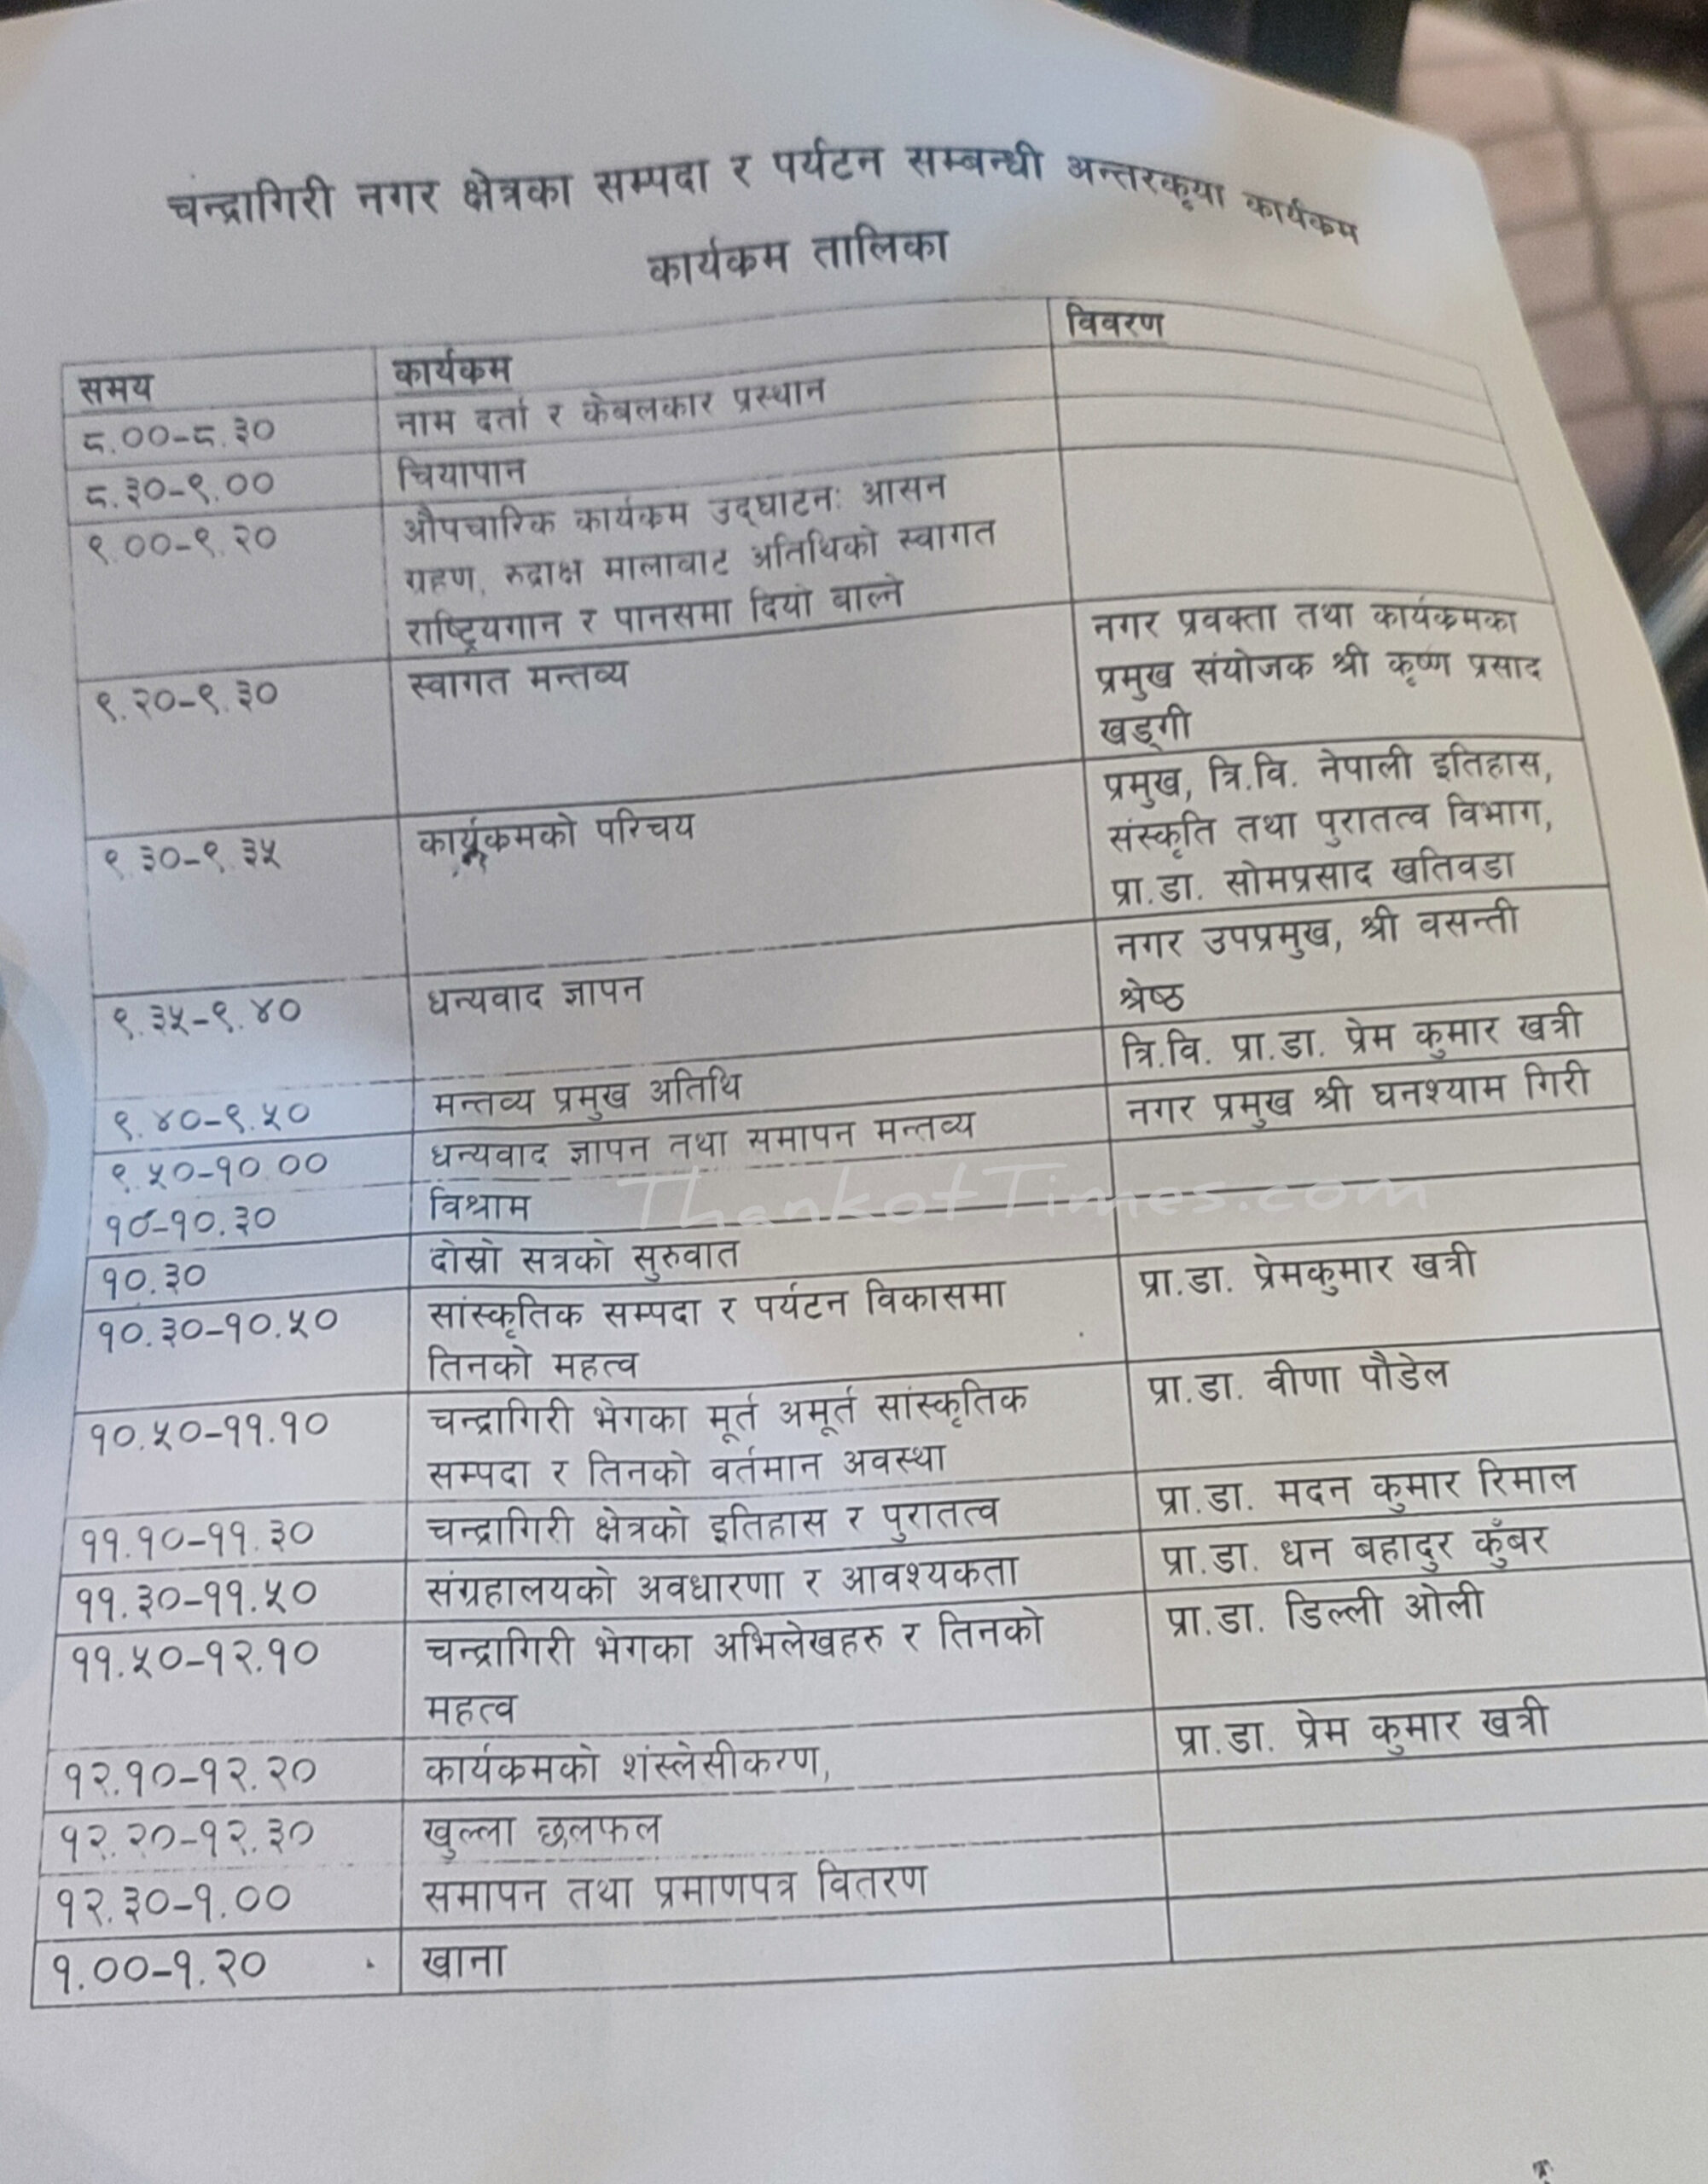 चन्द्रागिरी नगर क्षेत्रका सम्पदा र पर्यटन सम्बन्धी अन्तरकृया कार्यकम
कार्यकम तालिका
समय कार्यकम विवरण
८.००-८.३० नाम दर्ता र केबलकार प्रस्थान
८.३०-९.०० चियापान
९.००-९.२० औपचारिक कार्यकम उद्घाटनः आसन
ग्रहण, रुद्राक्ष मालाबाट अतिथिको स्वागत
राष्ट्रियगान र पानसमा दियो बाल्ने
९.२०-९.३० स्वागत मन्तव्य नगर प्रवक्ता तथा कार्यकमका
प्रमुख संयोजक श्री कृष्ण प्रसाद
खड्गी
९.३०-९.३५ कार्यकमको परिचय प्रमुख, त्रि.वि. नेपाली इतिहास,
संस्कृति तथा पुरातत्व विभाग,
प्रा.डा. सोमप्रसाद खतिवडा
९.३५-९.४० धन्यवाद ज्ञापन नगर उपप्रमुख, श्री वसन्ती
श्रेष्ठ
९.४०-९.५० मन्तव्य प्रमुख अतिथि त्रि.वि. प्रा.डा. प्रेम कुमार खत्री
९.५०-१०.०० धन्यवाद ज्ञापन तथा समापन मन्तव्य नगर प्रमुख श्री घनश्याम गिरी
१०-१०.३० विश्राम
ThankotTimes.com
१०.३० दोस्रो सत्रको सुरुवात
१०.३०-१०.५० सांस्कृतिक सम्पदा र पर्यटन विकासमा प्रा.डा. प्रेमकुमार खत्री
तिनको महत्व
१०.५०-११.१० चन्द्रागिरी भेगका मूर्त अमूर्त सांस्कृतिक प्रा.डा. वीणा पौडेल
सम्पदा र तिनको वर्तमान अवस्था
११.१०-११.३० चन्द्रागिरी क्षेत्रको इतिहास र पुरातत्व प्रा.डा. मदन कुमार रिमाल
११.३०-११.५० संग्रहालयको अवधारणा र आवश्यकता प्रा.डा. धन बहादुर कुँबर
११.५०-१२.१० चन्द्रागिरी भेगका अभिलेखहरु र तिनको प्रा.डा. डिल्ली ओली
महत्व
१२.१०-१२.२० कार्यकमको शंस्लेसीकरण, प्रा.डा. प्रेम कुमार खत्री
१२.२०-१२.३० खुल्ला छलफल
१२.३०-१.०० समापन तथा प्रमाणपत्र वितरण
१.००-१.२० खाना